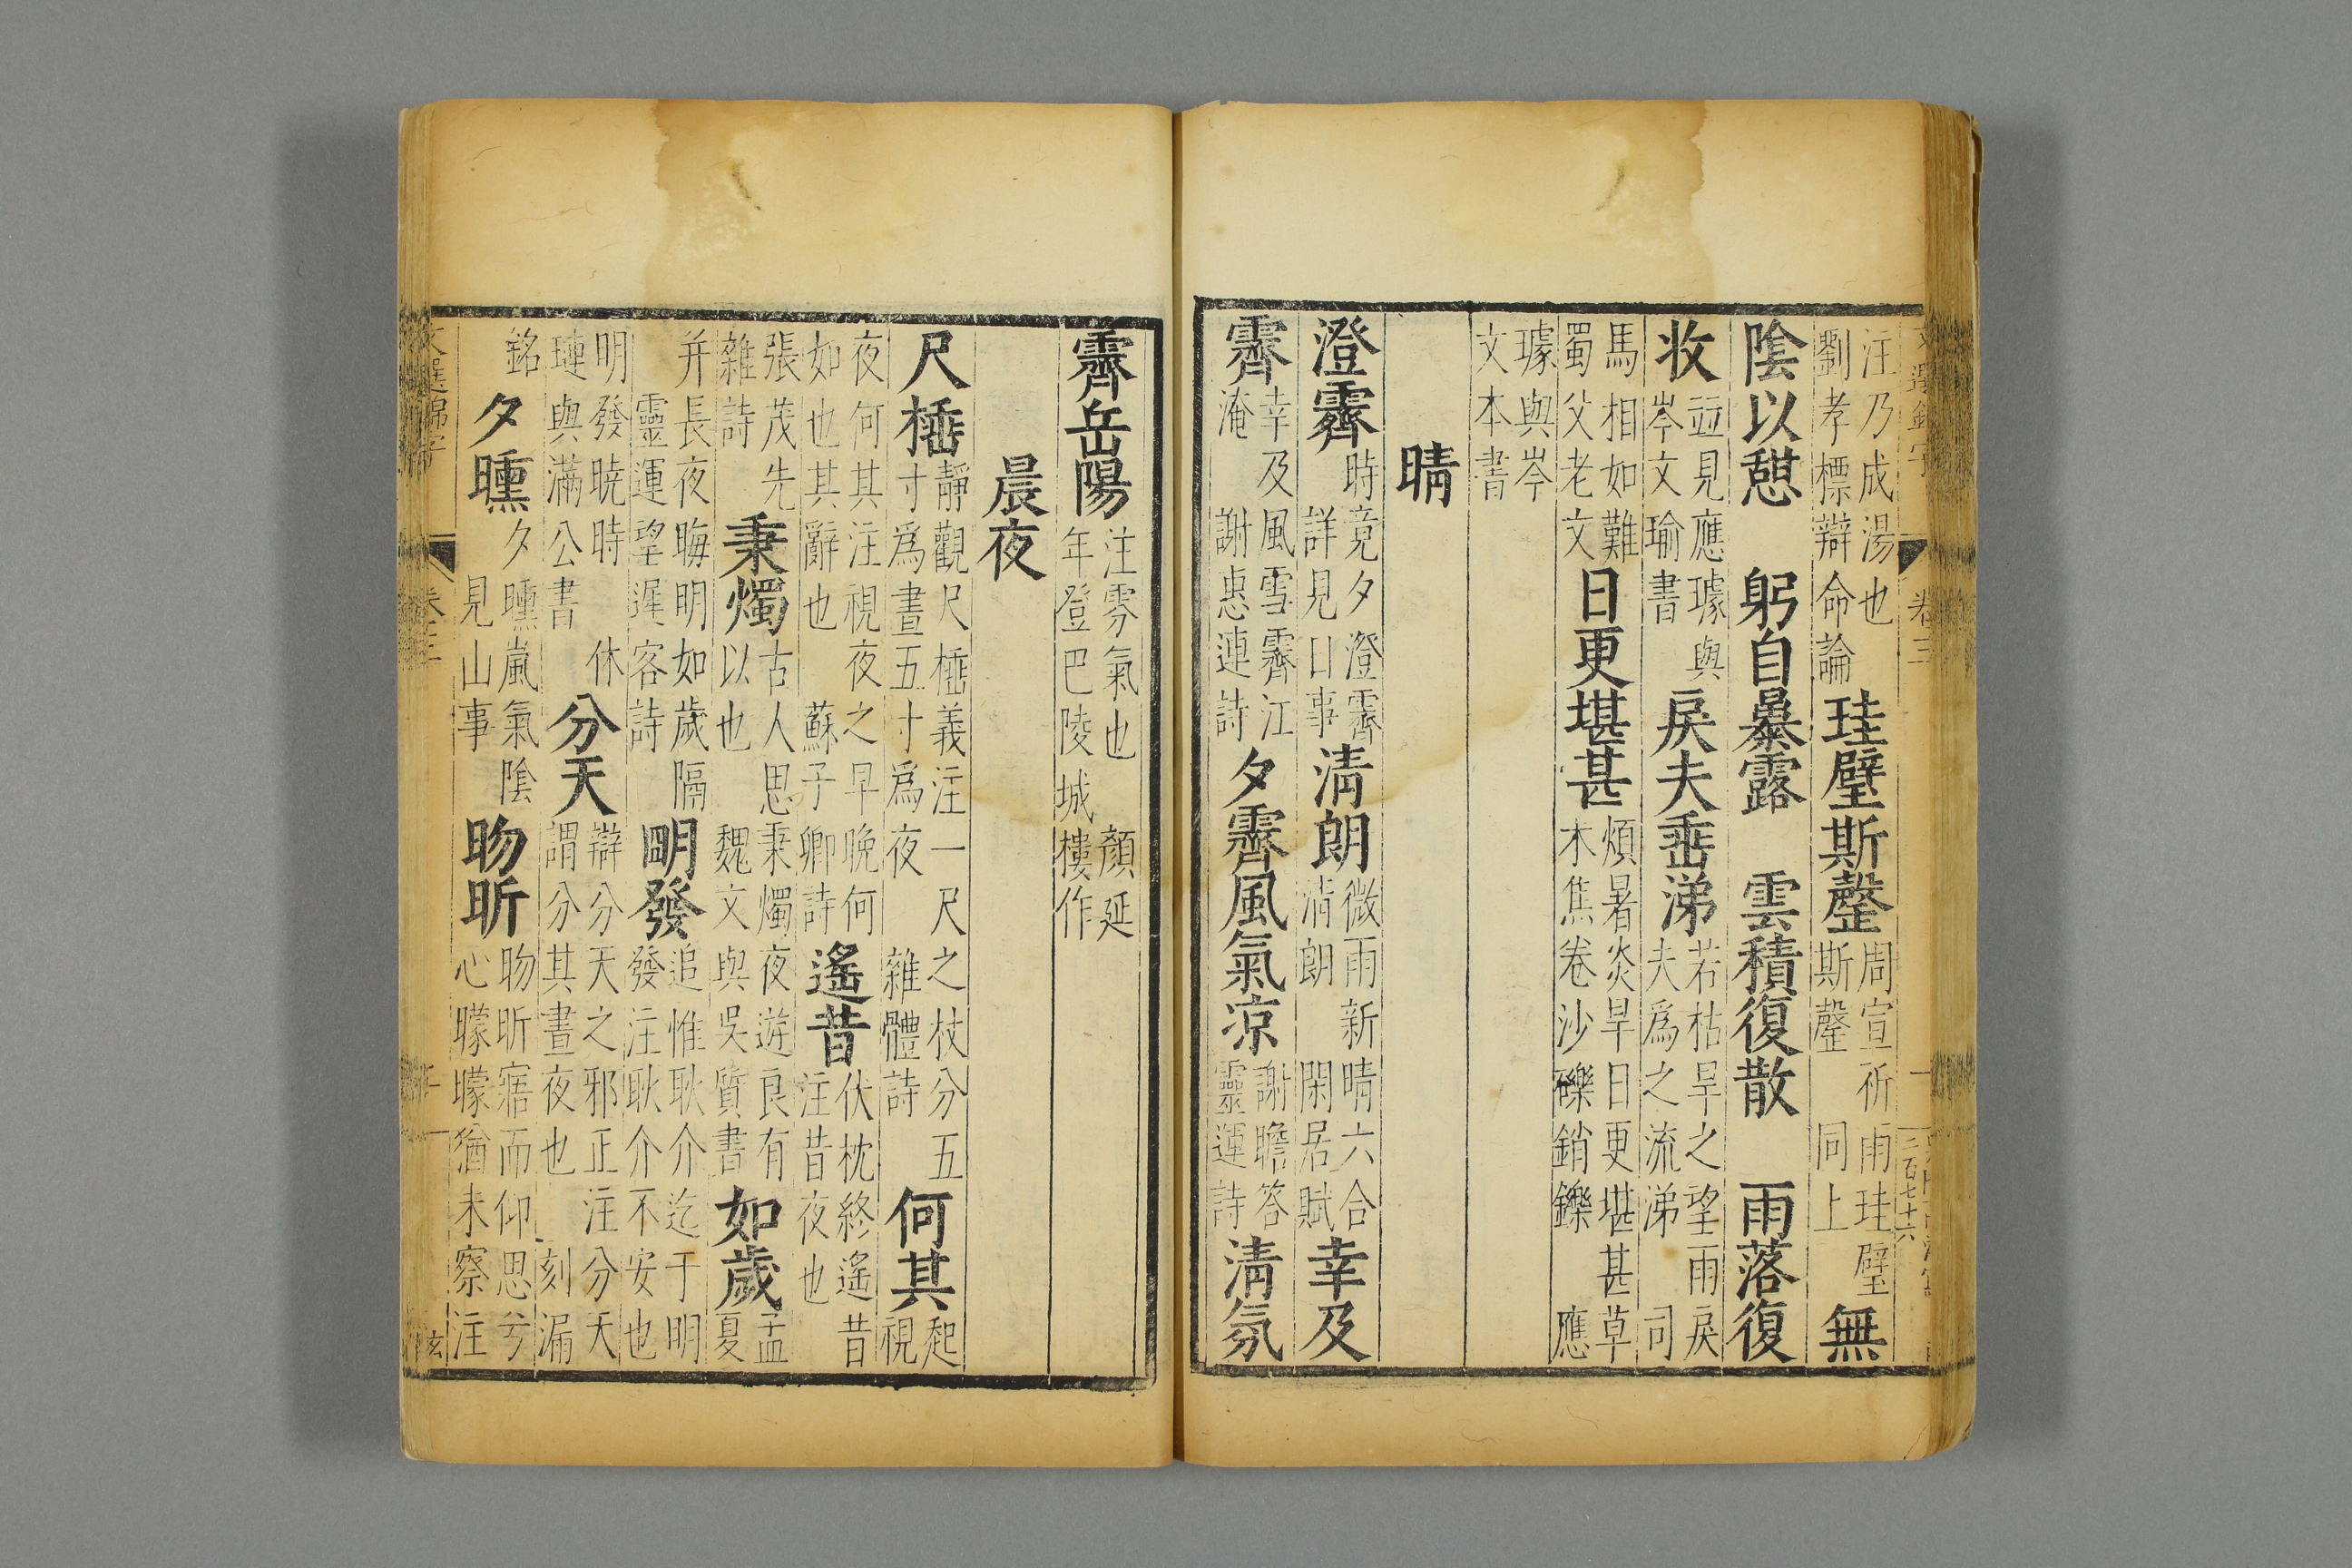 注乃成湯也
劉孝標辯命論
珪璧斯罄
周宣祈雨珪璧
斯罄 同上
無
陰以憇 躬自暴露 雲積復散 雨落復
收
並見應璩與
岑文瑜書
戾夫垂涕
若枯旱之望雨戾
夫爲之流涕 司
馬相如難
蜀父老文
日更堪甚
煩暑炎旱日更堪甚草
木焦卷沙礫銷鑠 應
璩與岑
文本書
晴
澄霽
時竟夕澄霽
詳見日事
清朗
微雨新晴六合
清朗 閑居賦
幸及
霽
幸及風雪霽江
淹 謝惠連詩
夕霽風氣凉
謝瞻答
靈運詩
清氛
霽岳陽
注雰氣也 顏延
年登巴陵城樓作
晨夜
尺棰
靜觀尺棰義注一尺之杖分五
寸爲晝五寸爲夜 雜體詩
何其
起視
夜何其注視夜之早晚何
如也其辭也 蘇子卿詩
遙昔
伏枕終遙昔
注昔夜也
張茂先
雜詩
秉燭
古人思秉燭夜遊良有
以也 魏文與吳質書
如歲
孟夏
并長夜晦明如歲隔
靈運望遲客詩
明發
追惟耿介迄于明
發注耿介不安也
明發曉時 休
璉與滿公書
分天
辯分天之邪正注分天
謂分其晝夜也 刻漏
銘
夕曛
夕曛嵐氣陰
見山事
昒昕
昒昕寤而仰思兮
心曚曚猶未察注